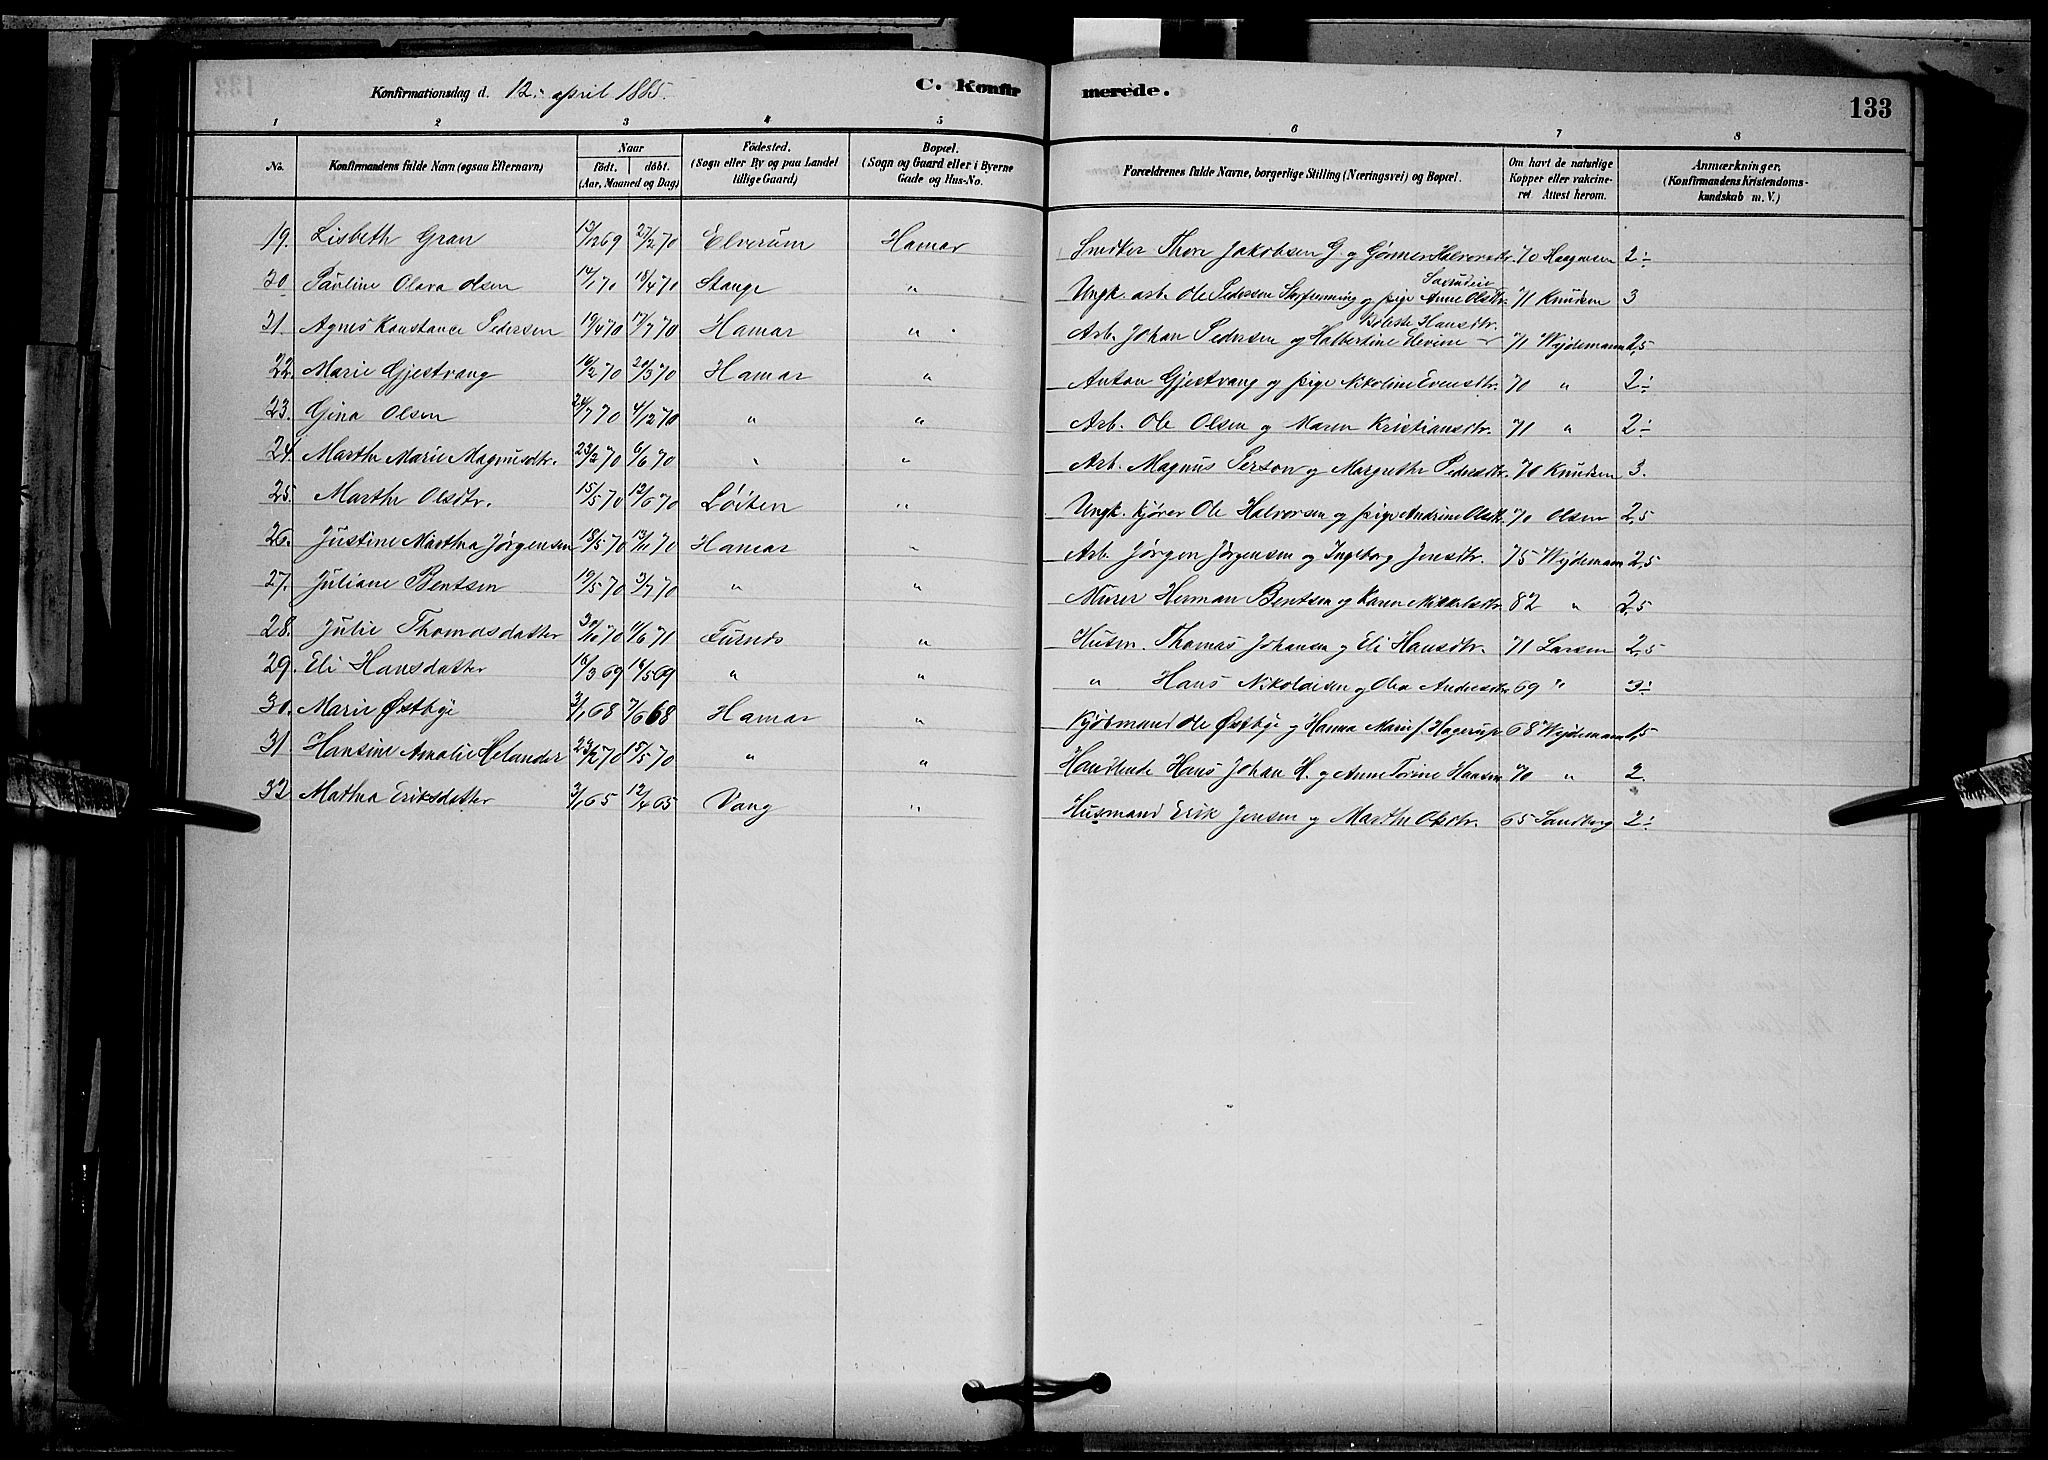 Konfirmationsdag d. 12. april 1885. C. Konfirmerede. 133
1 2 3 4 5 6 7 8
No. Konfirmandens fulde Navn (ogsaa Efternavn) Naar födt. döbt. (Aar, Maaned og Dag) Födested. (Sogn eller By og paa Landet tillige Gaard) Bopæl. (Sogn og Gaard eller i Byerne Gade og Hus-No. Forældrenes fulde Navne, borgerlige Stilling (Næringsvei) og Bopæl. Om havt de naturlige Kopper eller vakcineret Attest herom. Anmærkninger. (Konfirmandens Kristendomskundskab m. V.)
19. Lisbeth Gran 13/12 69 27/2 70 Elverum Hamar Snedker Thore Jakobsen G. og Gønner Halvorsdtr. 70 2÷
20 Pauline Olava Olsen 14/1 70 18/4 70 Stange " Ungk. arb. Ole Pedersen og pige Anne Olsdtr. 71 Knudsen 3
21. Agnes Konstance Pedersen 19/4 70 17/7 70 Hamar " Arb. Johan Pedersen og Halbertine Bøleste Hansdtr. 71 Wydemann 2,5
22. Marie Gjestvang 16/2 70 20/3 70 Hamar " Anton Gjestvang og pige Nikoline Evensdtr. 70 " 2÷
23. Gina Olsen 24/7 70 4/12 70 " " Arb. Ole Olsen og Maren Kristiansdtr. 71 " 2÷
24. Marthe Marie Magnusdtr. 23/2 70 6/6 70 " " Arb. Magnus Person og Margrethe Pedersdtr. 70 Knudsen 3.
25. Marthe Olsdtr. 15/5 70 12/6 70 Löiten " Ungk. kjører Ole Halvorsen og pige Andrine Olsdtr. 70 Olsen 2,5
26. Justine Martha Jørgensen 18/5 70 13/11 70 Hamar " Arb. Jørgen Jørgensen og Ingeborg Jensdtr. 75 Wydemann 2,5
27. Juliane Bentsen 19/5 70 3/7 70 " " Murer Herman Bentsen og Karen Mikkelsdtr. 82 " 2,5
28. Julie Thomasdatter 30/10 70 11/6 71 Furnes " Husm. Thomas Johansen og Eli Hansdtr. 71 Larsen 2,5
29. Eli Hansdatter 16/3 69 16/5 69 " " " Hans Nikolaisen og Olea Andersdtr. 69 " 3÷
30. Marie Østbye 3/1 68 7/6 68 Hamar " Kjøbmand Ole Østbye og Hanna Marie f. Hagerup 68 Wydemann 1,5
31 Hansine Amalie Helander 23/2 70 15/5 70 " " Handlende Hans Johan H. og Anne Torine Hansen 70 " 2.
32. Mathea Eriksdatter 3/1 65 12/4 65 Vang " Husmand Erik Jensen og Marthe Olsdtr. 65 Sandberg 2÷